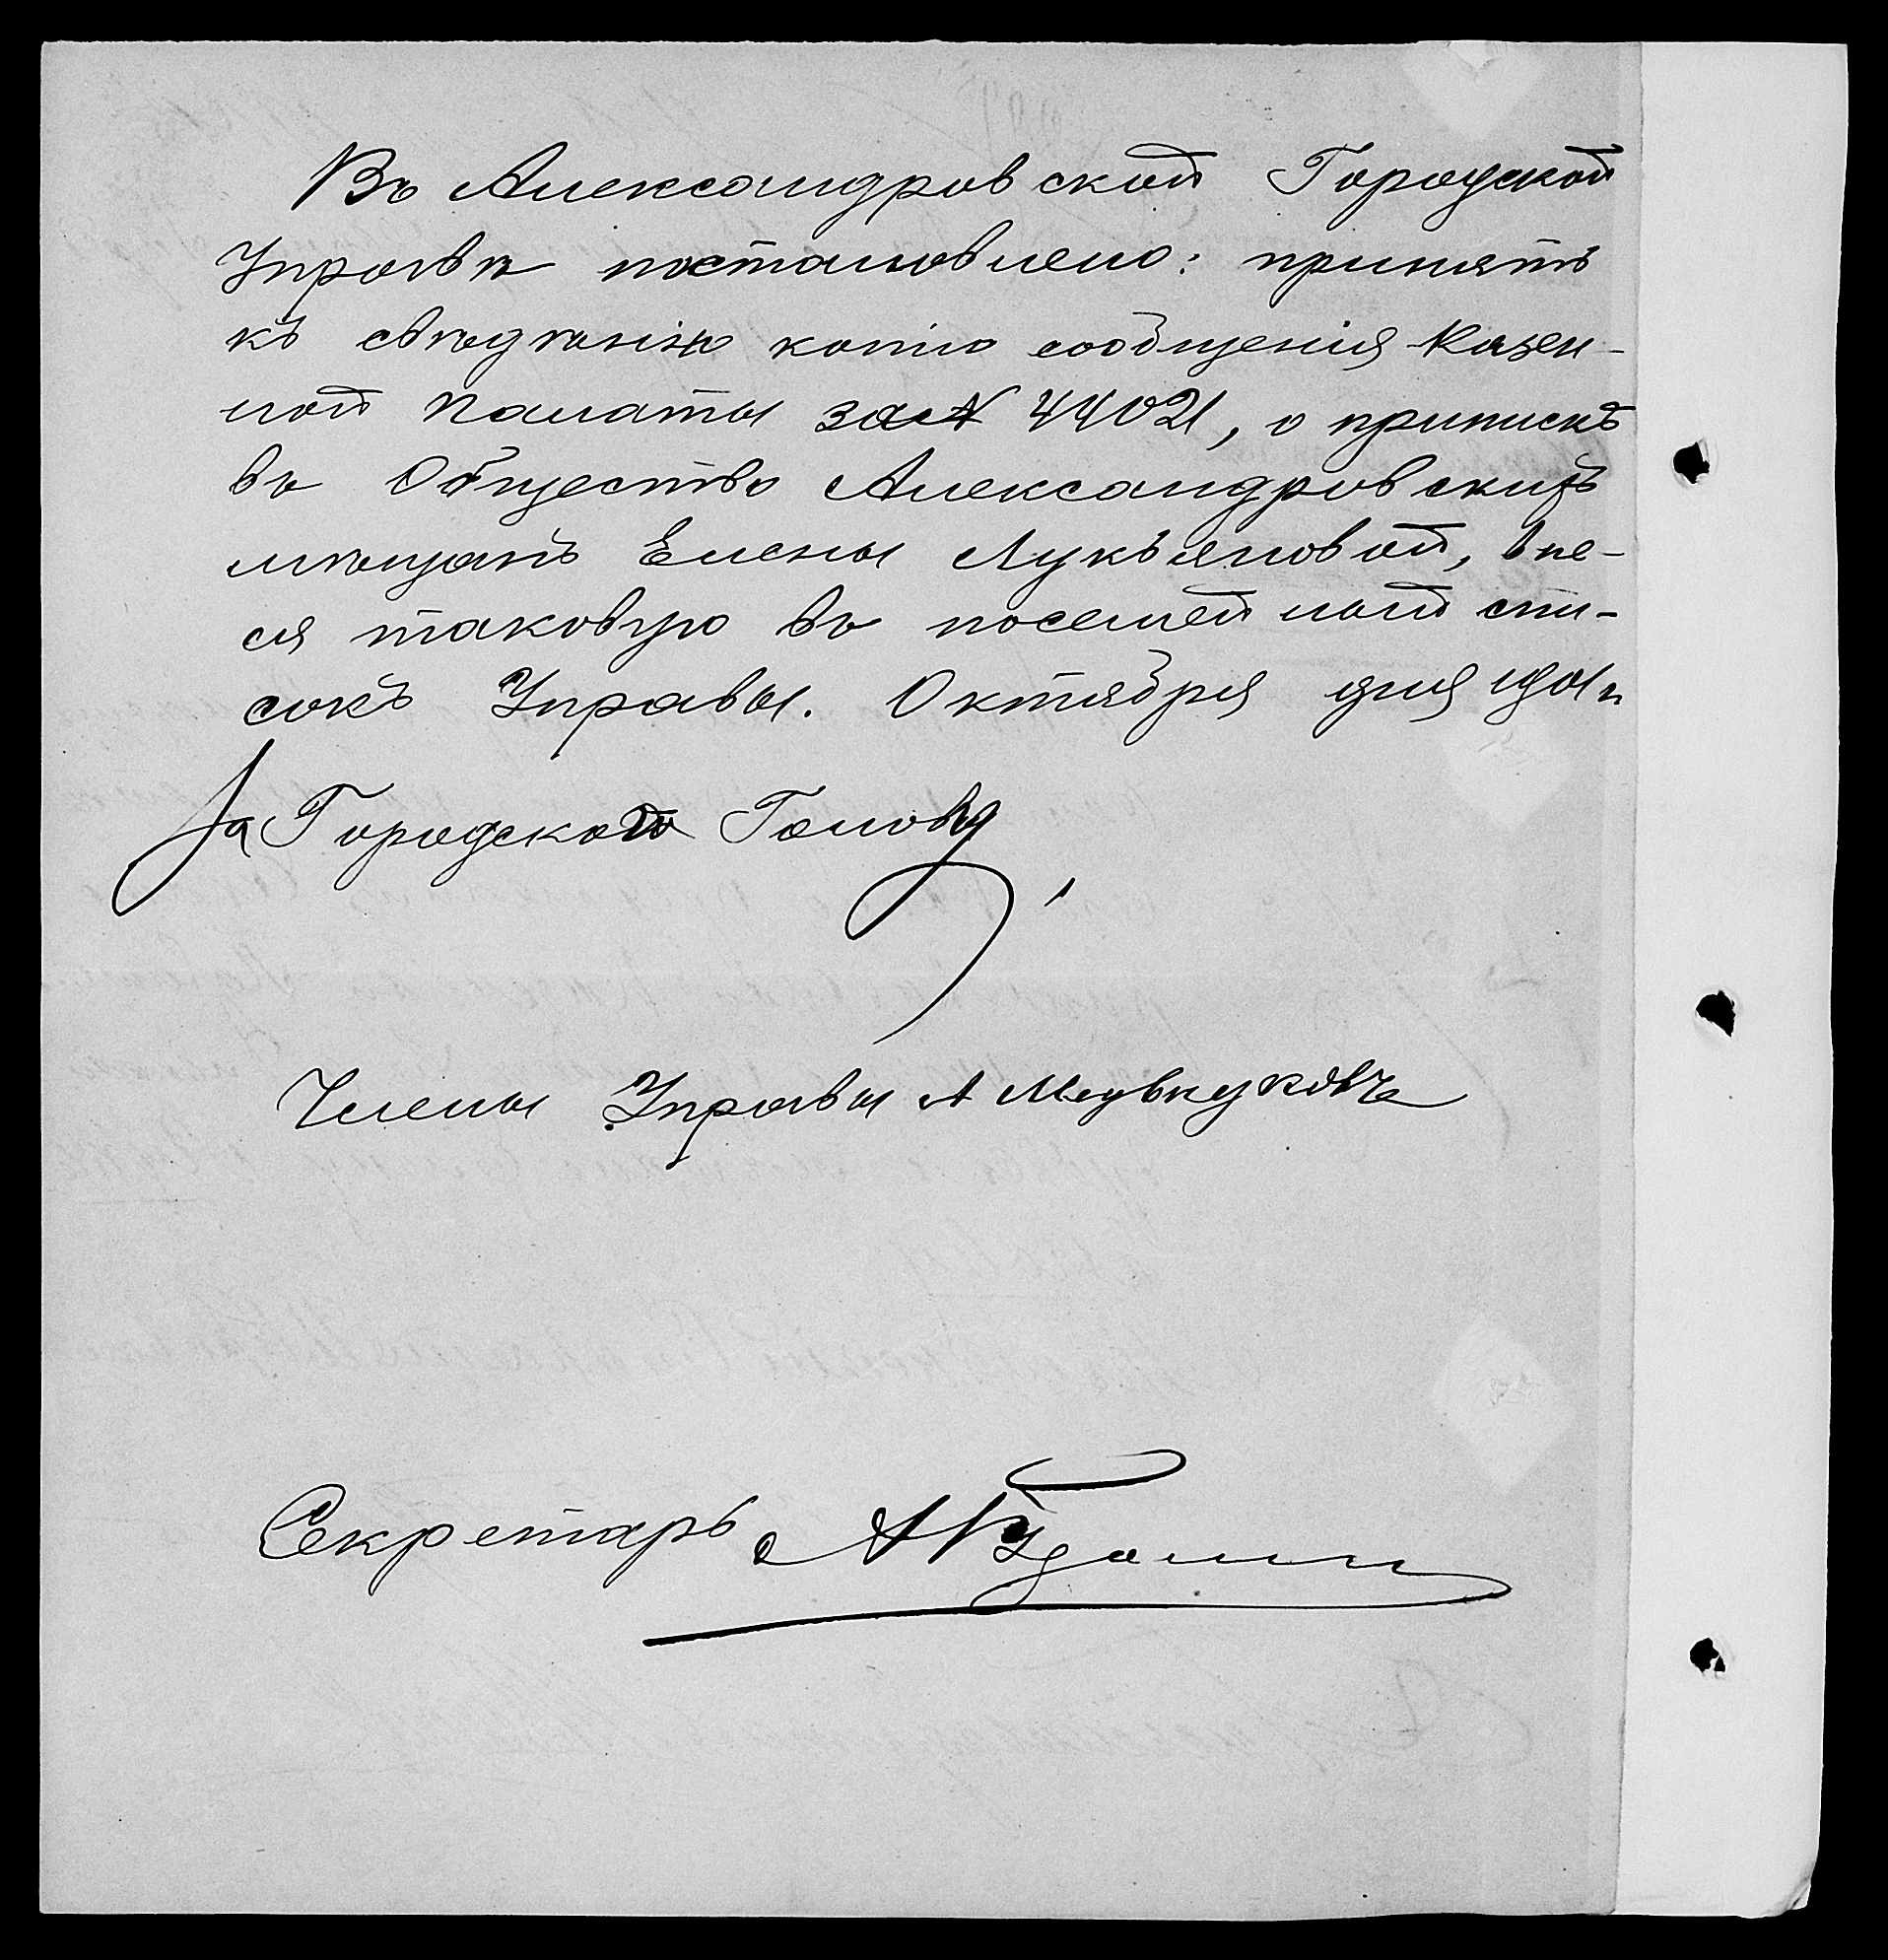 Въ Александровской Городской
Управѣ постановлено: принять
къ свѣдѣнію копію сообщенія Казен-
ной Палаты за № 44021, о припискѣ
въ Общество Александровскихъ
мѣщанъ Елены Лукьяновой, внe-
ся таковую въ посемейный спи-
сокъ Управы. Октября дня
За Городского Голову
Члены Управы А
Секретарь А